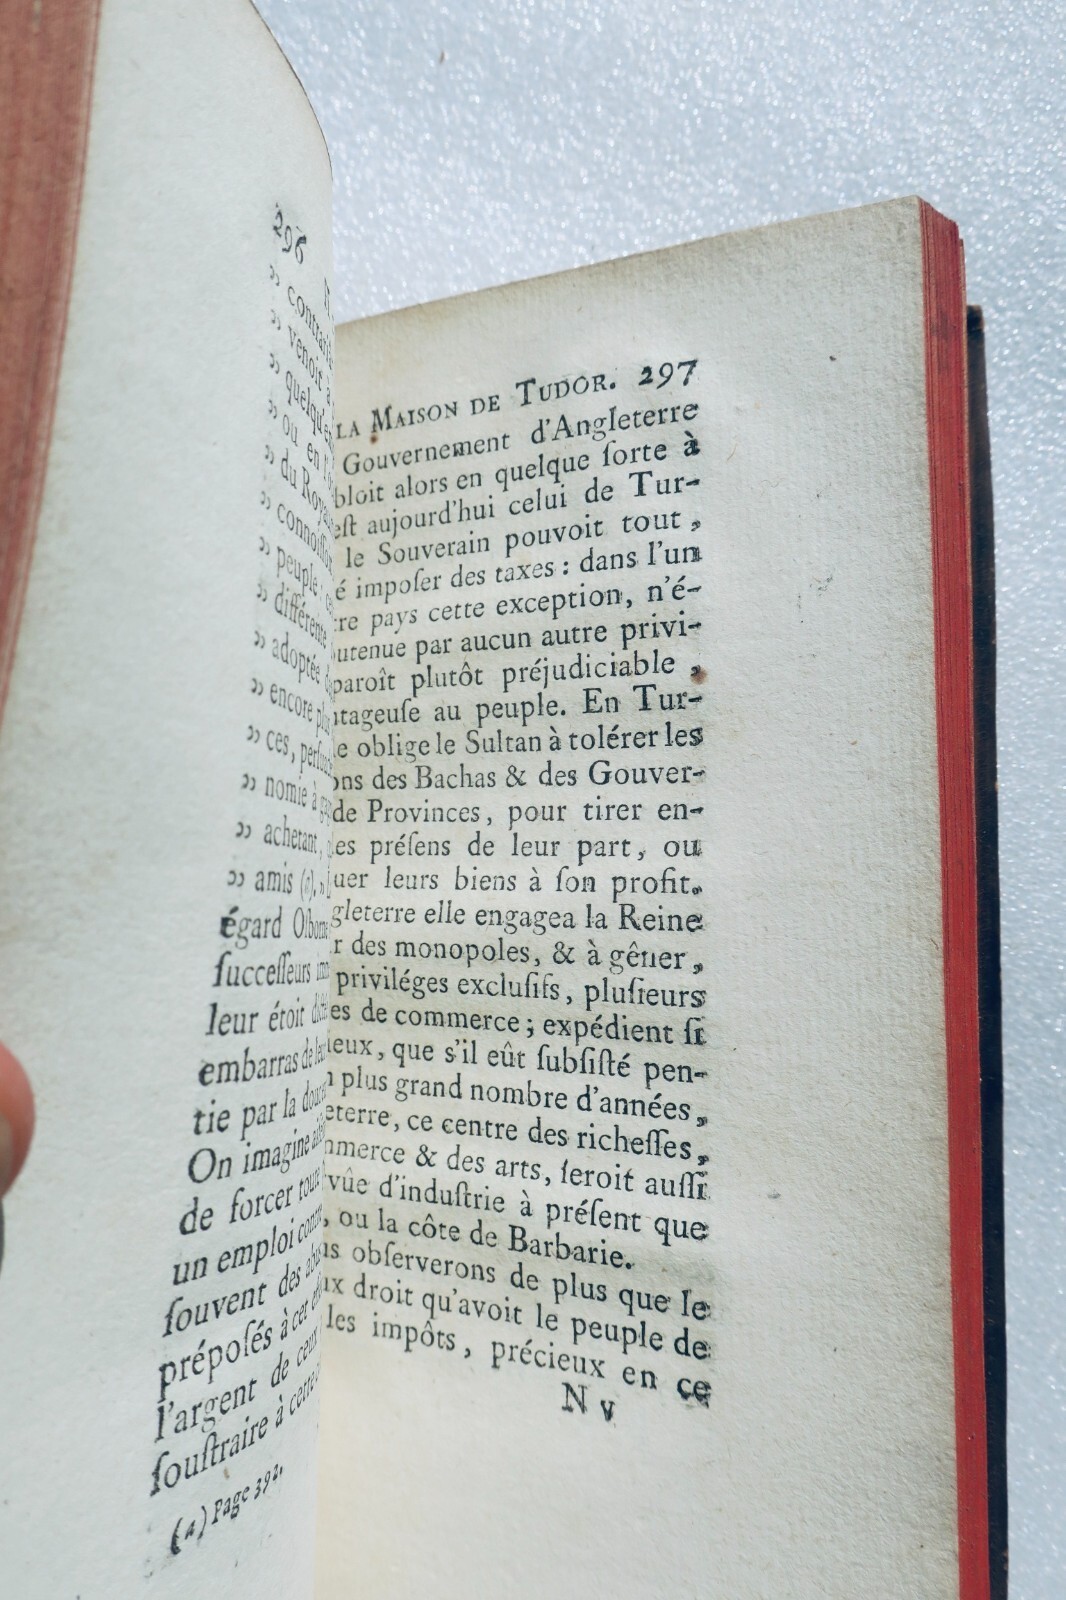 296
„ contrarié
„ venoit à
„ quelqu'en
„ ou en
„ du Royau
„ connoissoi
„ peuple
„ différente
„ adoptée
„ encore plus
„ ces, persua
„ nomie à
„ achetant,
„ amis (a). „
égard Osborne
ſucceſſeurs
leur étoit
embarras de leur
tie par la
On imagine
de forcer toute
un emploi
ſouvent des abus
prépoſés à cet
l'argent de ceux
ſouſtraire à cette
(a) Page 392.
LA MAISON DE TUDOR. 297
Gouvernement d'Angleterre
bloit alors en quelque ſorte à
eſt aujourd'hui celui de Tur-
le Souverain pouvoit tout,
é impoſer des taxes : dans l'un
re pays cette exception, n'é-
utenue par aucun autre privi-
paroît plutôt préjudiciable,
ntageuſe au peuple. En Tur-
le oblige le Sultan à tolérer les
ons des Bachas & des Gouver-
de Provinces, pour tirer en-
les préſens de leur part, ou
uer leurs biens à ſon profit.
gleterre elle engagea la Reine
r des monopoles, & à gêner,
priviléges excluſifs, pluſieurs
es de commerce ; expédient ſi
ieux, que s'il eût ſubſiſté pen-
n plus grand nombre d'années,
eterre, ce centre des richeſſes,
mmerce & des arts, ſeroit auſſi
rvûe d'induſtrie à préſent que
, ou la côte de Barbarie.
us obſerverons de plus que le
ux droit qu'avoit le peuple de
les impôts, précieux en ce
N v